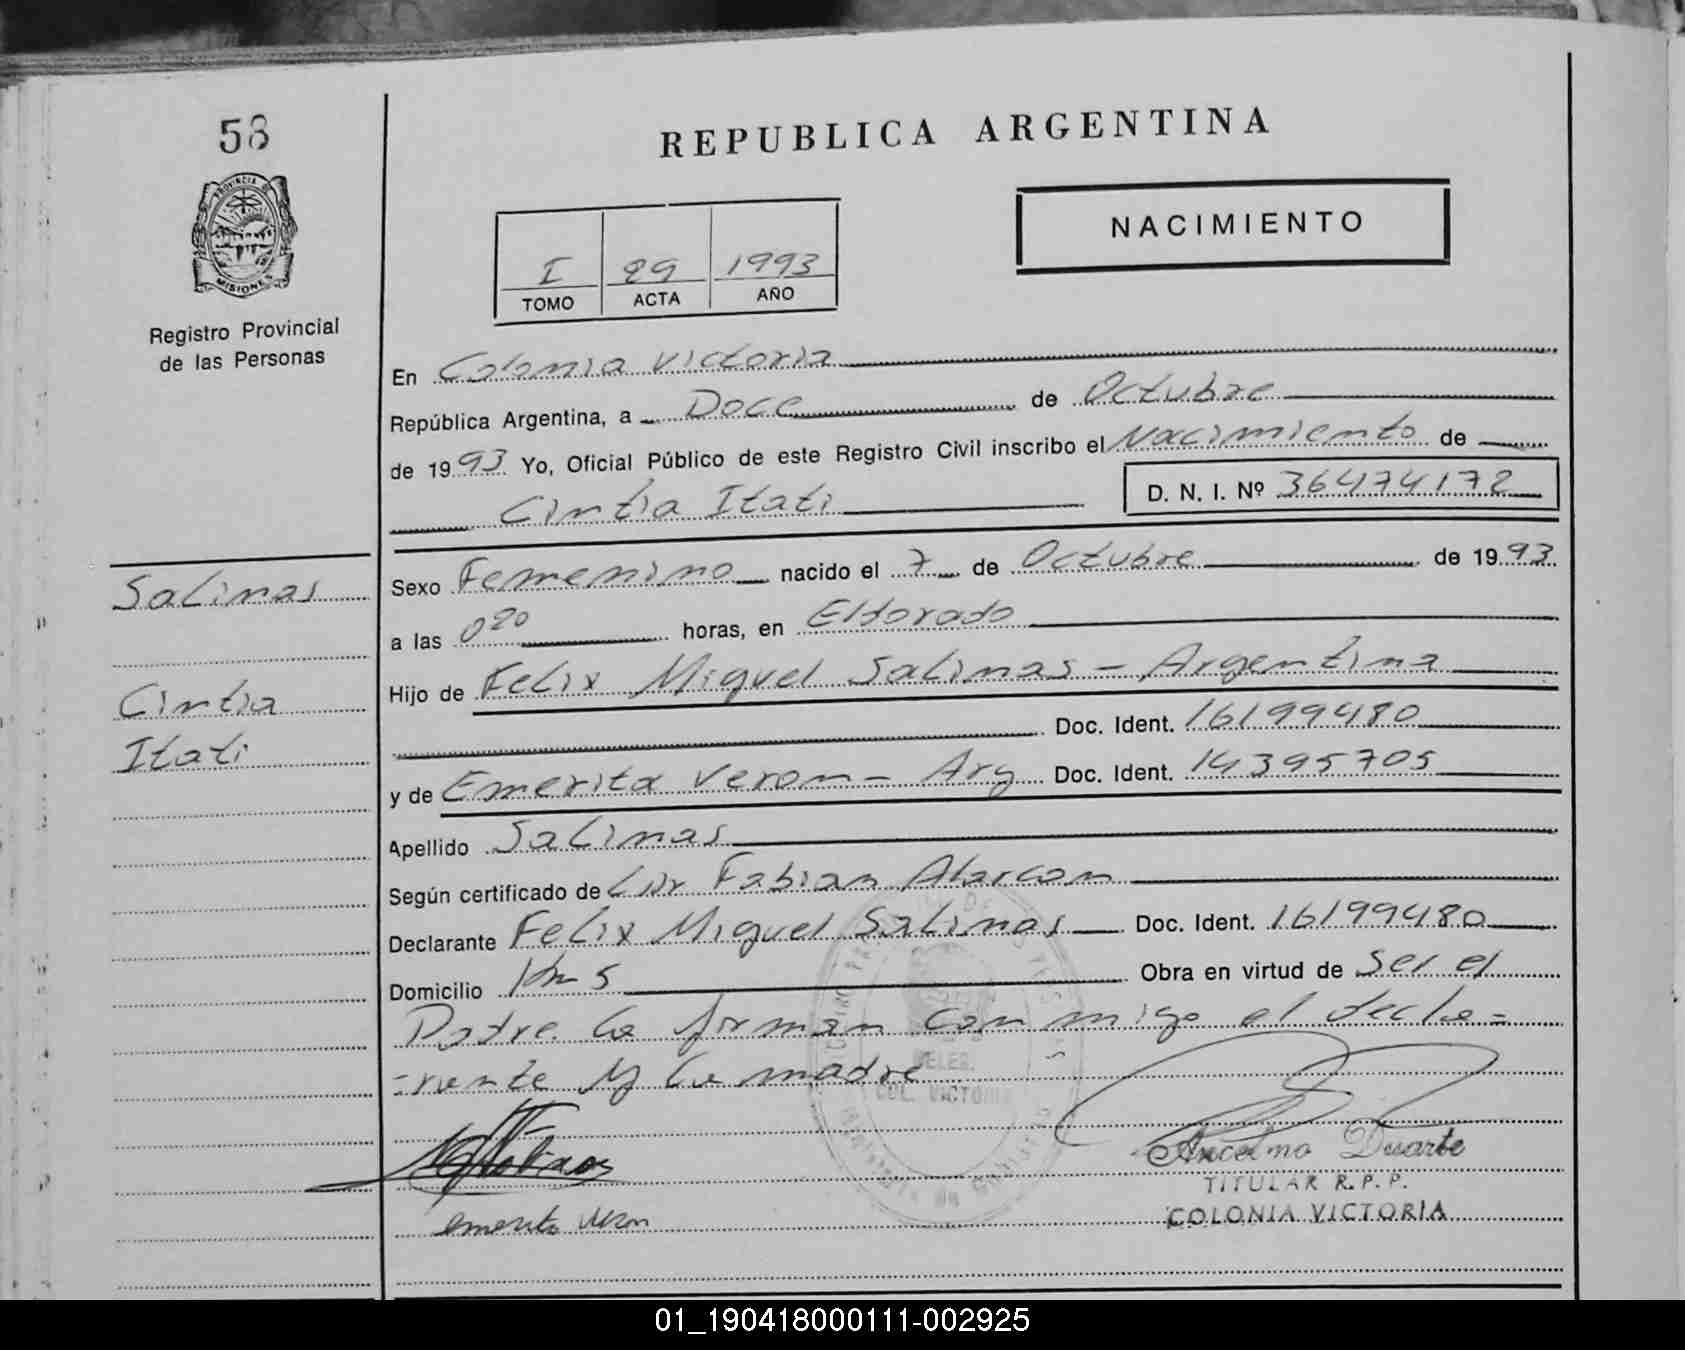 58
PROVINCIA DE
MISIONES
Registro Provincial
de las Personas
REPUBLICA ARGENTINA
NACIMIENTO
I 29 1993
TOMO ACTA AÑO
En Colonia Victoria
República Argentina, a Doce de Octubre
de 1993 Yo, Oficial Público de este Registro Civil inscribo el Nacimiento de
Cintia Itati D. N. I. Nº 36474172
Salinas
Sexo Femenino nacido el 7 de Octubre de 1993
a las 0 20 horas, en Eldorado
Cintia
Hijo de Felix Miguel Salinas - Argentina
Itati
Doc. Ident. 16199480
y de Emerita Veron - Arg Doc. Ident. 14395705
Apellido Salinas
Según certificado de Fabian Alarcon
Declarante Felix Miguel Salinas Doc. Ident. 16199480
Domicilio Km 5 Obra en virtud de Ser el
Padre la firman conmigo el decla=
=rante y la madre
DELEG.
COL. VICTORIA
Ancelmo Duarte
TITULAR R.P.P.
emerita veron COLONIA VICTORIA
01_190418000111-002925